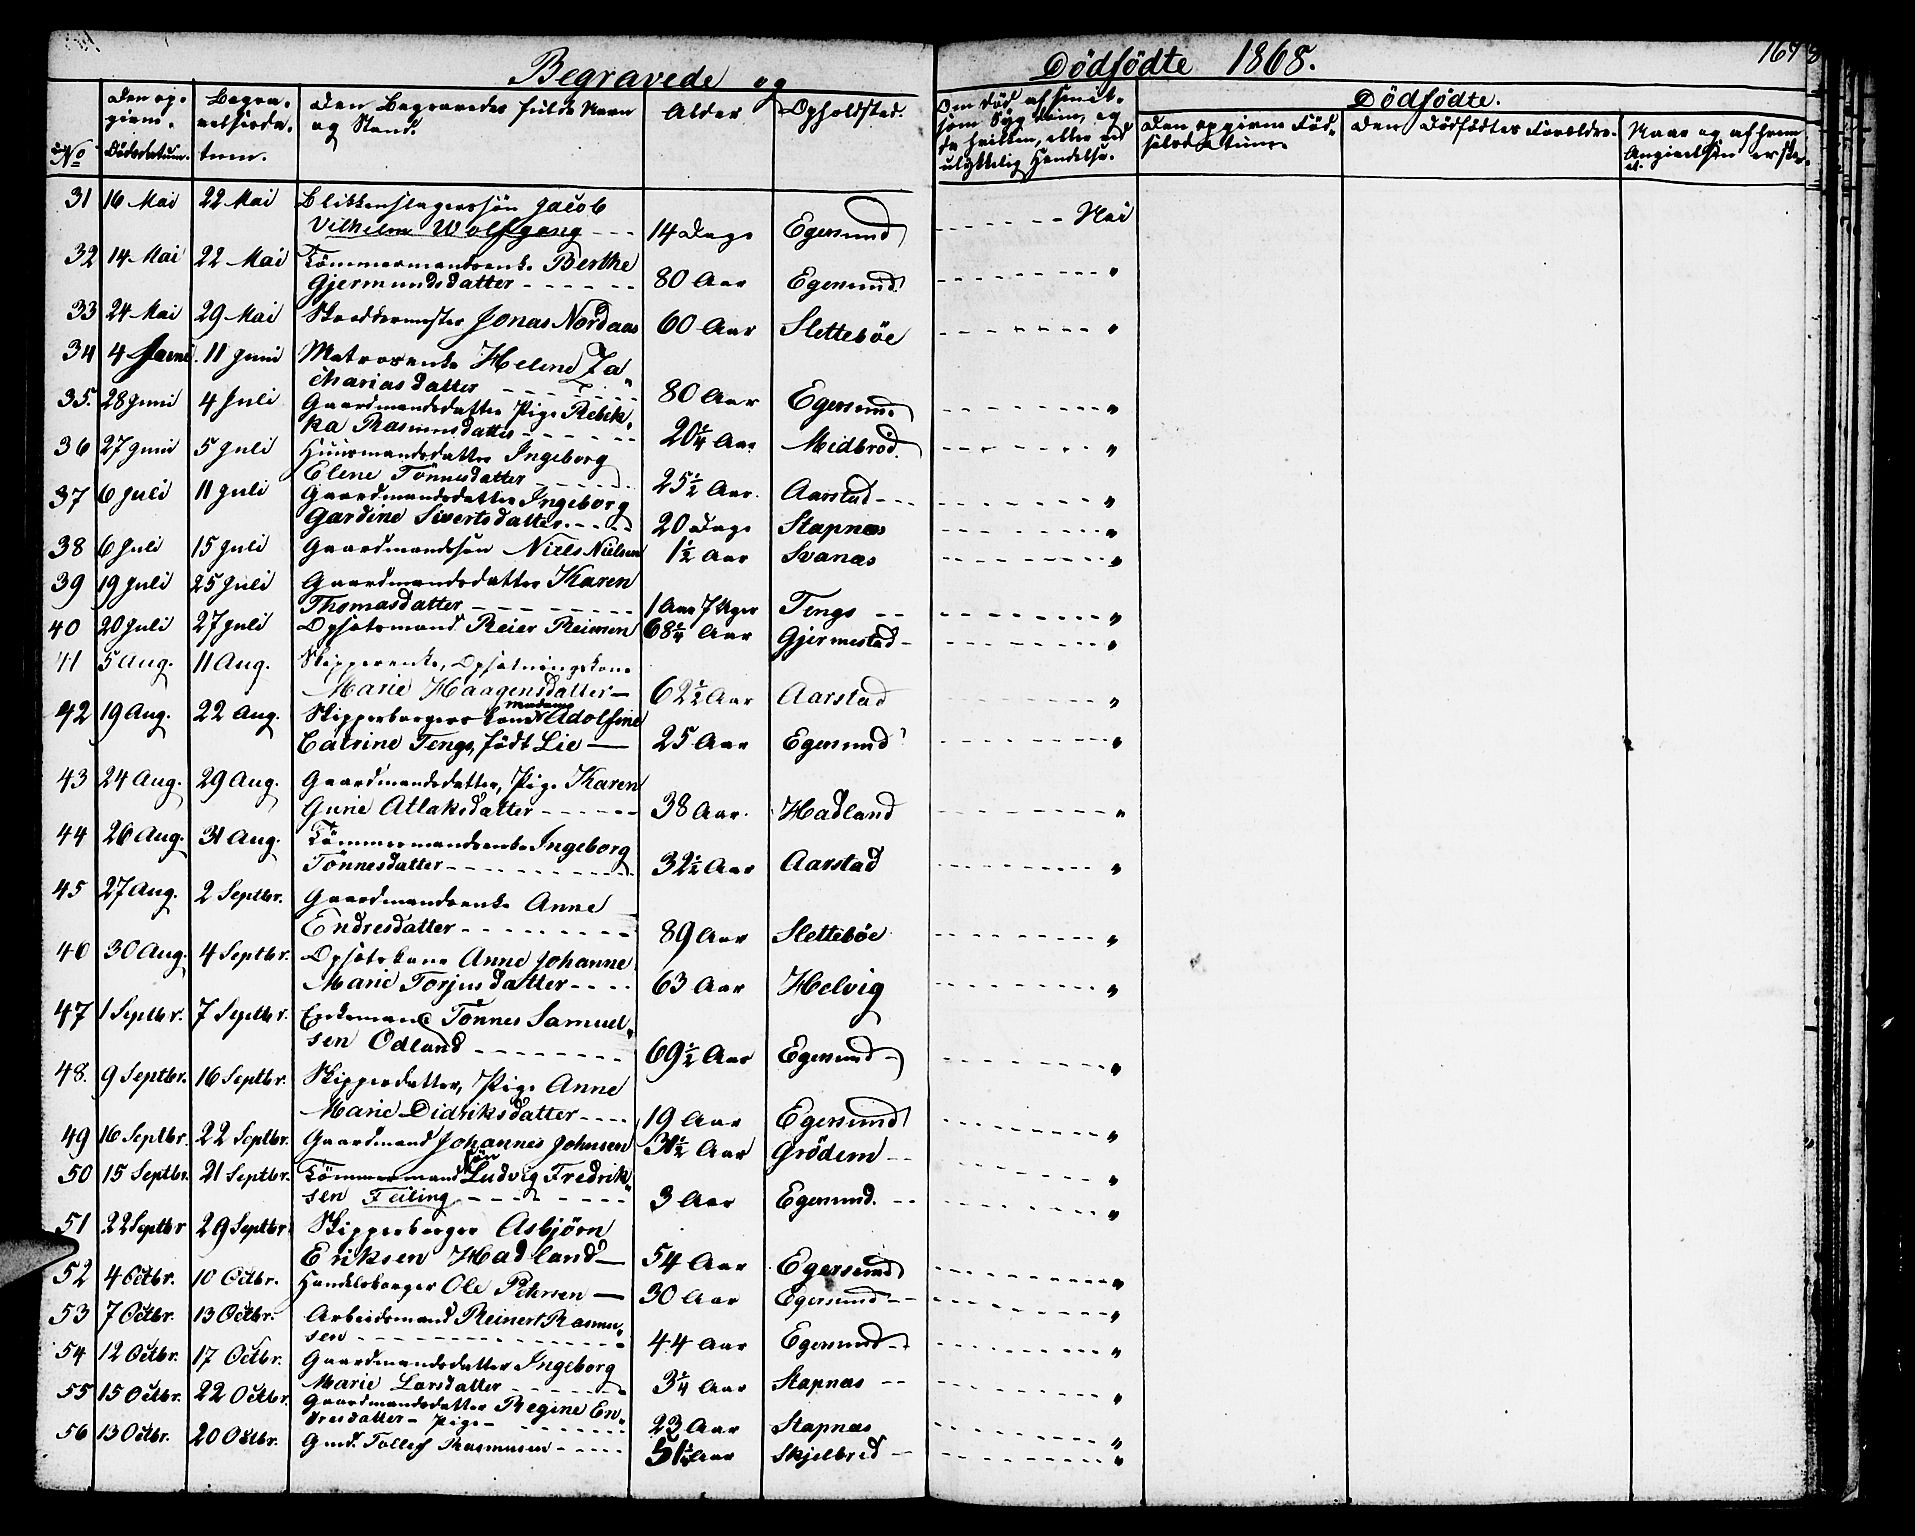 Begravede og Dödfödte 1868. 169
No
Den op-
givne
Dödsdatum.
Begra-
velsesda-
tum.
Den Begravedes fulde Navn
og Stand.
Alder
Opholdsted.
Om död af smit-
som Sygdom, og
da hvilken, eller ved
ulykkelig Hendelse.
Dödfödte.
Den opgivne Föd-
selsdatum.
Den Dödfödtes Forældre.
Naar og af hvem
Angivelsen er skee-
et.
31 16 Mai 22 Mai Blikkenslagerssön Jacob
Vilhelm Wolfgang 14 Dage Egersund Nei
32 14 Mai 22 Mai Tömmermandsenke Berthe
Gjermundsdatter 80 Aar Egersund "
33 24 Mai 29 Mai Skreddermester Jonas Nordaas 60 Aar Sletteböe "
34 4 Juni 11 Juni Matrosenke Helene Za-
chariasdatter 80 Aar Egersund "
35. 28 Juni 4 Juli Gaardmandsdatter Pige Rebek-
ka Rasmusdatter 20¼ Aar Midbröd "
36 27 Juni 5 Juli Huusmandsdatter Ingeborg
Elene Tönnesdatter 25½ Aar. Aarstad "
37 6 Juli 11 Juli Gaardmandsdatter Ingeborg
Gardine Sivertsdatter 20 Dage Stapnæs "
38 6 Juli 15 Juli Gaardmandssön Niels Nielsen 1½ Aar Svanæs "
39 19 Juli 25 Juli Gaardmandsdatter Karen
Thomasdatter 1 Aar 7 Uger Tengs "
40 20 Juli 27 Juli Opsetsmand Reier Reiersen 68¼ Aar Gjermestad "
41 5 Aug. 11 Aug. Skipperenke, Opsetningskone
Marie Haagensdatter 62½ Aar Aarstad "
42 19 Aug. 22 Aug. Skipperborgers kone Madame Adolfine
Catrine Tengs, födt Lie 25 Aar Egersund "
43 24 Aug. 29 Aug. Gaardmandsdatter, Pige Karen
Gurie Atlaksdatter 38 Aar. Hadland "
44 26 Aug. 31 Aug. Tömmermandsenke Ingeborg
Tönnesdatter 32½ Aar Aarstad "
45 27 Aug. 2 Septbr. Gaardmandsenke Anne
Endresdatter 89 Aar Sletteböe "
46 30 Aug. 4 Septbr. Opsetskone Anne Johanne
Marie Torjusdatter 63 Aar Helvig "
47 1 Septbr. 7 Septbr. Enkemand Tönnes Samuel-
sen Odland 69½ Aar Egersund "
48. 9 Septbr. 16 Septbr. Skipperdatter, Pige Anne
Marie Didriksdatter 19 Aar Egersund "
49 16 Septbr. 22 Septbr. Gaardmand Johannes Johnsen 31½ Aar Grödem "
50 15 Septbr. 21 Septbr. Tömmermand sön Ludvig Fredrik-
sen Feiling 3 Aar Egersund. "
51 22 Septbr 29 Septbr. Skipperborger Asbjörn
Eriksen Hadland 54 Aar Egersund "
52 4 Octbr. 10 Octbr. Handelsborger Ole Petersen 30 Aar Egersund "
53 7 Octbr. 13 Octbr. Arbeidsmand Reinert Rasmu-
sen 44 Aar Egersund "
54 12 Octbr. 17 Octbr. Gaardmandsdatter Ingeborg
Marie Larsdatter ¾ Aar Stapnæs "
55 15 Octbr. 22 Octbr. Gaardmandsdatter Regine En-
dresdatter Pige 23 Aar Stapnæs "
56 13 Octbr. 20 Octbr. Gmd. Tollef Rasmussen Aar Skjelbred "